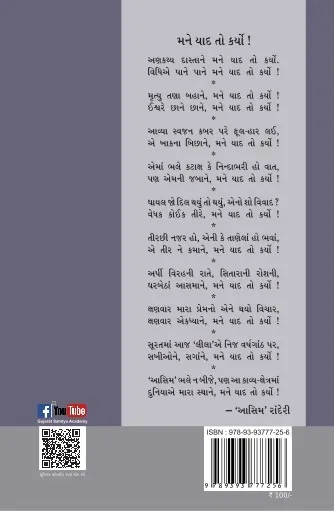 મને યાદ તો કર્યો !
અણકથ્ય દાસ્તાને મને યાદ તો કર્યો.
વિધિએ પાને પાને મને યાદ તો કર્યો !
*
મૃત્યુ તણા બહાને, મને યાદ તો કર્યો !
ઈશ્વરે છાને છાને, મને યાદ તો કર્યો !
*
આવ્યા સ્વજન કબર પરે ફૂલ-હાર લઈ,
એ ખાકના બિછાને, મને યાદ તો કર્યો !
*
એમાં ભલે કટાક્ષ કે નિન્દાભરી હો વાત,
પણ એમની જબાને, મને યાદ તો કર્યો !
*
ઘાયલ જો દિલ થયું તો થયું, એનો શો વિવાદ?
વેધક કોઈક તીરે, મને યાદ તો કર્યો !
*
તીરછી નજર હો, એની કે તાણેલાં હો ભવાં,
એ તીર ને કમાને, મને યાદ તો કર્યો !
*
અર્પી વિરહની રાતે, સિતારાની રોશની,
ઘરબેઠાં આસમાને, મને યાદ તો કર્યો !
*
ક્ષણવાર મારા પ્રેમનો એને થયો વિચાર,
ક્ષણવાર એકધ્યાને, મને યાદ તો કર્યો !
*
સૂરતમાં આજ ‘લીલા’એ નિજ વર્ષગાંઠ પર,
સખીઓને, સગાંને, મને યાદ તો કર્યો !
*
‘આસિમ’ ભલે ન બીજે, પણ આ કાવ્ય-ક્ષેત્રમાં
દુનિયાએ મારા સ્થાને, મને યાદ તો કર્યો !
– ‘આસિમ’ રાંદેરી
f You Tube
Gujarat Sahitya Academy
ISBN : 978-93-93777-25-6
9 789393 777256
₹ 100/-